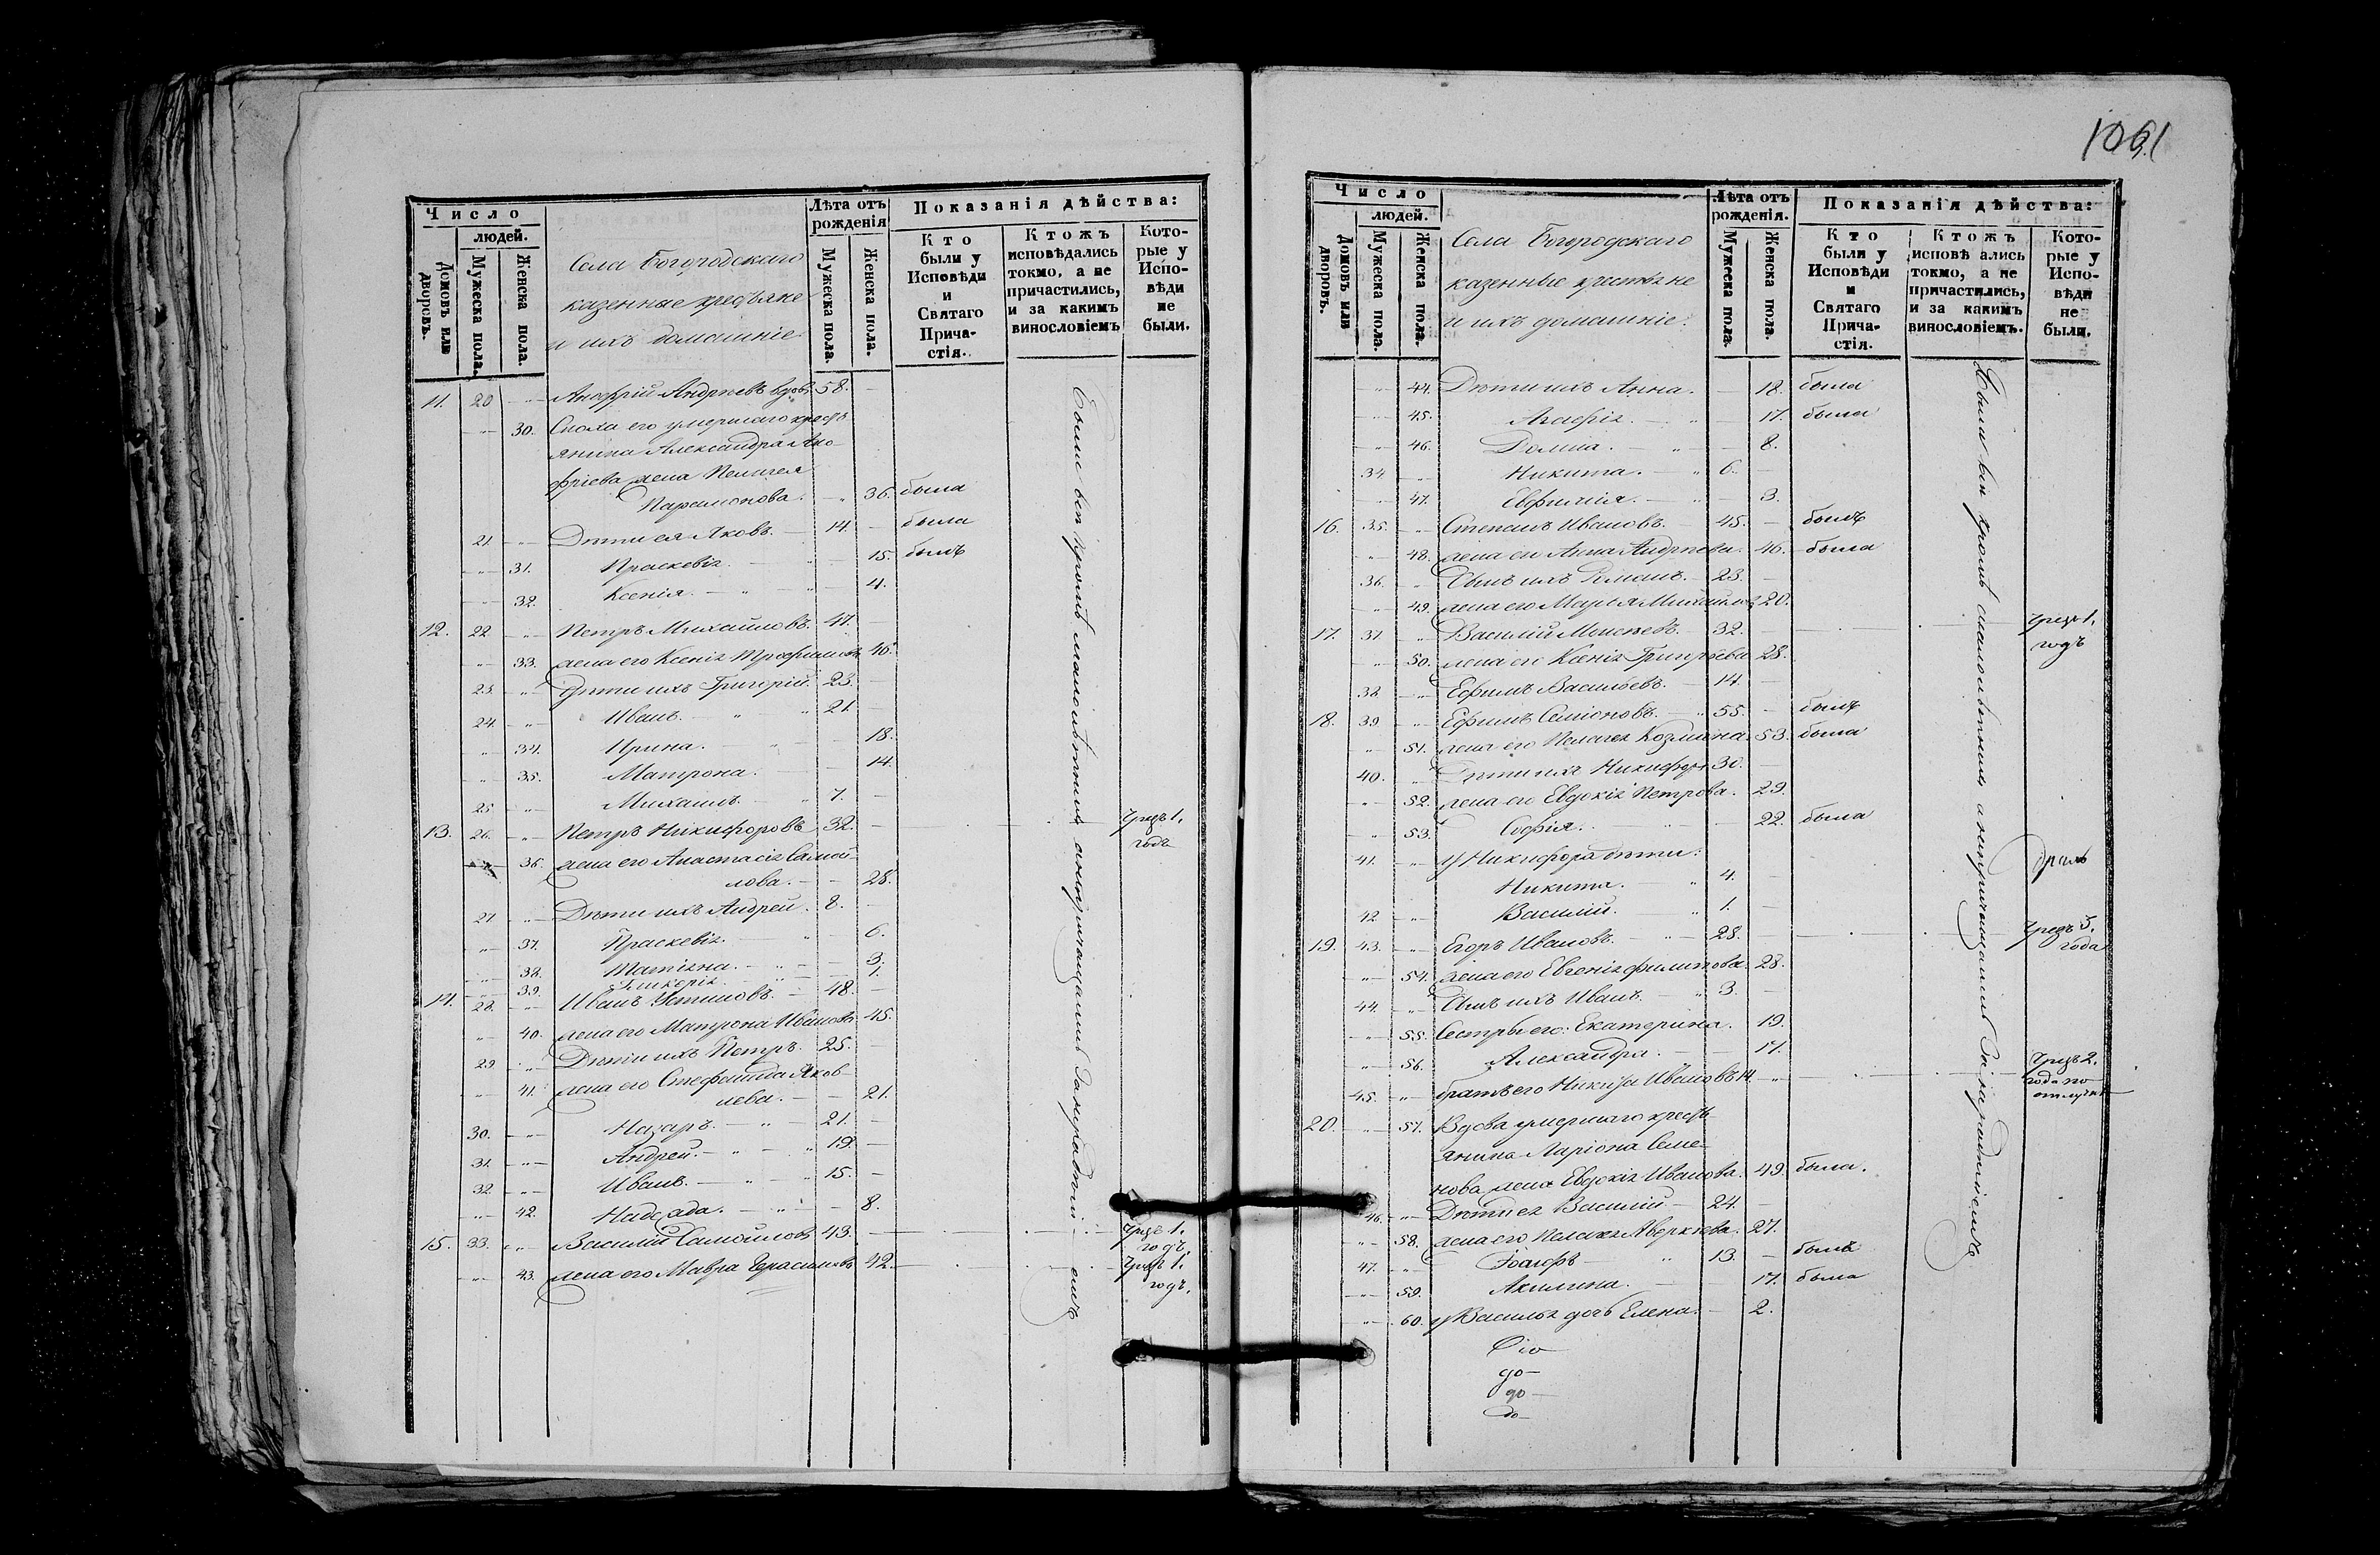 Число
людей.
Домовъ или дворовъ.
Мужеска пола.
Женска пола.
Села Богородскаго
казенные крестьяне
и ихъ домашніе
Лѣта отъ
рожденія
Мужеска пола.
Женска пола.
Показанія дѣйства:
Кто
были у
Исповѣди
и
Святаго
Прича-
стія.
Ктожъ
исповѣдались
токмо, а не
причастились,
и за какимъ
винословіемъ
Кото-
рые у
Испо-
вѣди
не
были.
11. 20 Андрей Андреевъ вдовъ 58.
30. Сноха его умершаго кресть
янина Александра Ано
фріева жена Пелагея
Парамонова. 36. была
21. Дѣти ея Яковъ. 14. была
31. Праскевія. 15. былъ
32. Ксенія. 4.
12. 22 Петръ Михайловъ. 47.
33. жена его Ксенія Трофимова 46.
23. Дѣти ихъ Григорій. 23.
24. Иванъ. 21.
34. Ирина. 18.
35. Матрона. 14.
25. Михаилъ. 7.
13. 26. Петръ Никифоровъ 32. чрезъ 1.
годъ
36. жена его Анастасія Самой-
лова. 28.
27 Дѣти ихъ Андрей. 8.
37. Праскевія. 6.
38. Татіяна. 3.
39. Гликерія 1.
14. 28. Иванъ Устиновъ. 48.
40. жена его Матрона Иванова 45.
29 Дѣти ихъ Петръ. 25.
41. жена его Стефанида Яков-
лева. 21.
30. Назаръ. 21.
31. Андрей. 19.
32. Иванъ. 15.
42. Надежда. 8.
15. 33. Василій Самойловъ 43. чрезъ 1.
годъ.
43. жена его Мавра Герасимова 42. чрезъ 1.
годъ.
Были всѣ кромѣ малолѣтнихъ
1061
Число
людей.
Домовъ или дворовъ.
Мужеска пола.
Женска пола.
Села Богородскаго
казенные крестьяне
и ихъ домашніе.
Лѣта отъ
рожденія.
Мужеска пола.
Женска пола.
Показанія дѣйства:
Кто
были у
Исповѣди
и
Святаго
Прича-
стія.
Ктожъ
исповѣ ались
токмо, а не
причастились,
и за какимъ
винословіемъ.
Кото-
рые у
Испо-
вѣди
не
были.
44. Дѣти ихъ Анна. 18. была
45. Агафія. 17. была
46. Домна. 8.
34. Никита. 6.
47. Евфимія. 3.
16. 35. Степанъ Ивановъ. 45. былъ
48. жена его Анна Андреева. 46. была
36. Сынъ ихъ Романъ. 23.
49. жена его Марья Михайлова 20.
17. 37 Василій Моисеевъ. 32. чрезъ 1.
годъ
50. жена его Ксенія Григорьева 28.
38 Ефимъ Васильевъ. 14.
18. 39 Ефимъ Семіоновъ. 55. былъ
51. жена его Пелагея Козмина. 53. была
40. Дѣти ихъ Никифоръ 30.
52. жена его Евдокія Петрова. 29.
53. Софія. 22. была
41. у Никифора дѣти:
Никита. 4.
42 Василій. 1.
19. 43. Егоръ Ивановъ. 28. чрезъ 3.
года
54. жена его Евгенія Филипова. 28.
44. Сынъ ихъ Иванъ. 3.
55. Сестры его: Екатерина. 19.
56. Александра. 17.
45. братъ его Никита Ивановъ 14. чрезъ 2.
года по
отлучкѣ
20. 57. Вдова умершаго кресть
янина Ларіона Семе-
нова жена Евдокія Иванова. 49. была.
46. Дѣти ея Василій 24.
58. жена его Пелагея Аверкіева. 27.
47. 13. былъ
59. Акилина. 17. была
60. у Василья дочь Елена. 2.
Были всѣ кромѣ малолѣтнихъ